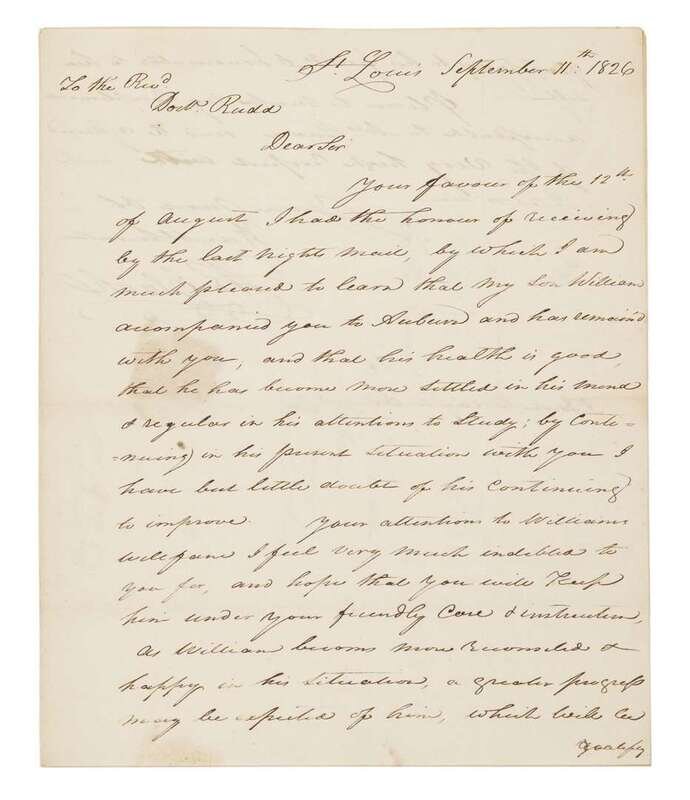 St. Louis September 11th: 1826
To the Revd
Doctr. Rudd
Dear Sir
Your favour of the 12th.
of August I had the honour of receiving
by the last nights mail, by which I am
much pleased to learn that my Son William
accompanied you to Auburn and has remaind
with you, and that his health is good,
that he has become more settled in his mind
& regular in his attentions to Study; by Conti-
=nuing in his present situation with you I
have but little doubt of his Continuing
to improve. Your attentions to Williams
wellfare I feel very much indebted to
you for, and hope that you will Keep
him under your friendly Care & instruction,
as William becoms more reconseled &
happy in his situation, a greater progress
may be expected of him, which will be
gratify